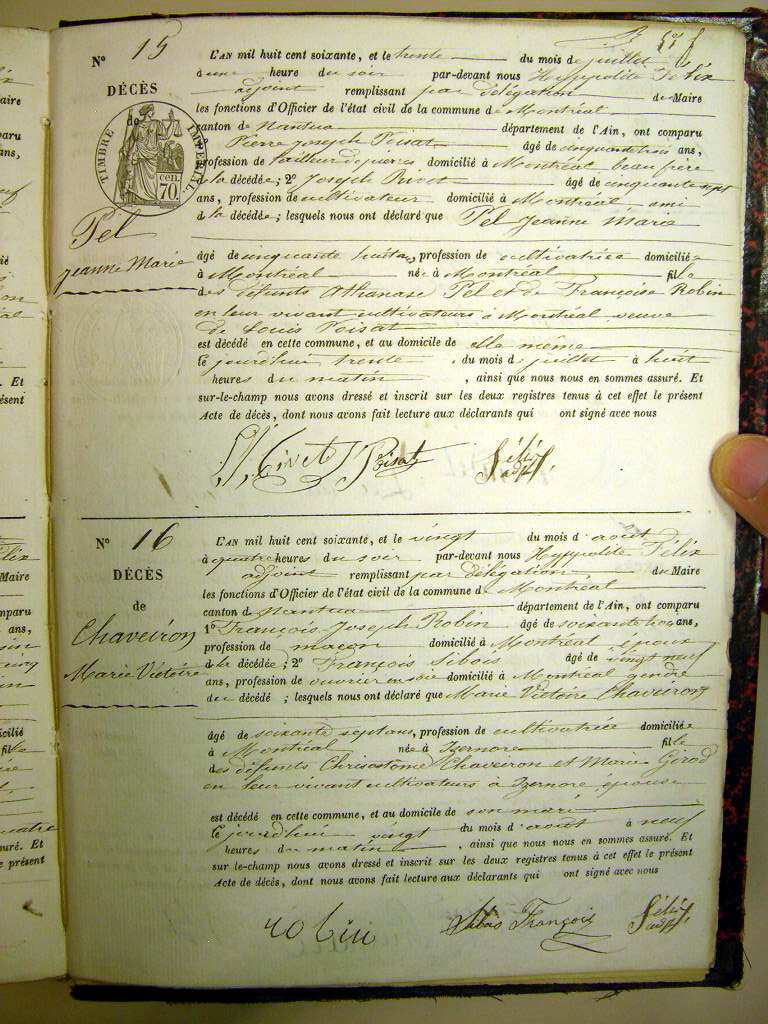 N° 15
DÉCÈS
de
TIMBRE IMPÉRIAL
70 cen.
Pel
Jeanne Marie
L'AN mil huit cent soixante, et le trente du mois de juillet
à une heure du soir par-devant nous Hyppolite Félix
adjoint remplissant par délégation du Maire
les fonctions d'Officier de l'état civil de la commune de Montréal
canton de Nantua département de l'Ain, ont comparu
Pierre Joseph Poisat âgé de cinquante trois ans,
profession de tailleur de pierres domicilié à Montréal beau frère
de la décédée; 2° Joseph Rivet âgé de cinquante sept
ans, profession de cultivateur domicilié à Montréal, ami
de la décédée; lesquels nous ont déclaré que Pel Jeanne Marie
âgé de cinquante huit ans, profession de cultivatrice domiciliée
à Montréal née à Montréal fille
des défunts Athanase Pel et de Françoise Robin
en leur vivant cultivateurs à Montréal veuve
de Louis Poisat
est décédé en cette commune, et au domicile de elle même
le jourd'hui trente du mois de juillet à huit
heures du matin, ainsi que nous nous en sommes assuré. Et
sur-le-champ nous avons dressé et inscrit sur les deux registres tenus à cet effet le présent
Acte de décès, dont nous avons fait lecture aux déclarants qui ont signé avec nous
Rivet Poisat Félix adjt
N° 16
DÉCÈS
de
Chaveiron
Marie Victoire
L'AN mil huit cent soixante, et le vingt du mois d'août
à quatre heures du soir par-devant nous Hyppolite Félix
adjoint remplissant par délégation du Maire
les fonctions d'Officier de l'état civil de la commune de Montréal
canton de Nantua département de l'Ain, ont comparu
1° François Joseph Robin âgé de soixante trois ans,
profession de maçon domicilié à Montréal époux
de la décédée; 2° François Sibois âgé de vingt neuf
ans, profession de ouvrier en soie domicilié à Montréal gendre
du décédé; lesquels nous ont déclaré que Marie Victoire Chaveiron
âgé de soixante sept ans, profession de cultivatrice domiciliée
à Montréal née à Izernore fille
des défunts Chrisostome Chaveiron et Marie Girod
en leur vivant cultivateurs à Izernore, épouse
est décédé en cette commune, et au domicile de son mari
le jourd'hui vingt du mois d'août à neuf
heures du matin, ainsi que nous nous en sommes assuré. Et
sur-le-champ nous avons dressé et inscrit sur les deux registres tenus à cet effet le présent
Acte de décès, dont nous avons fait lecture aux déclarants qui ont signé avec nous
robin Sibois François Félix adjt